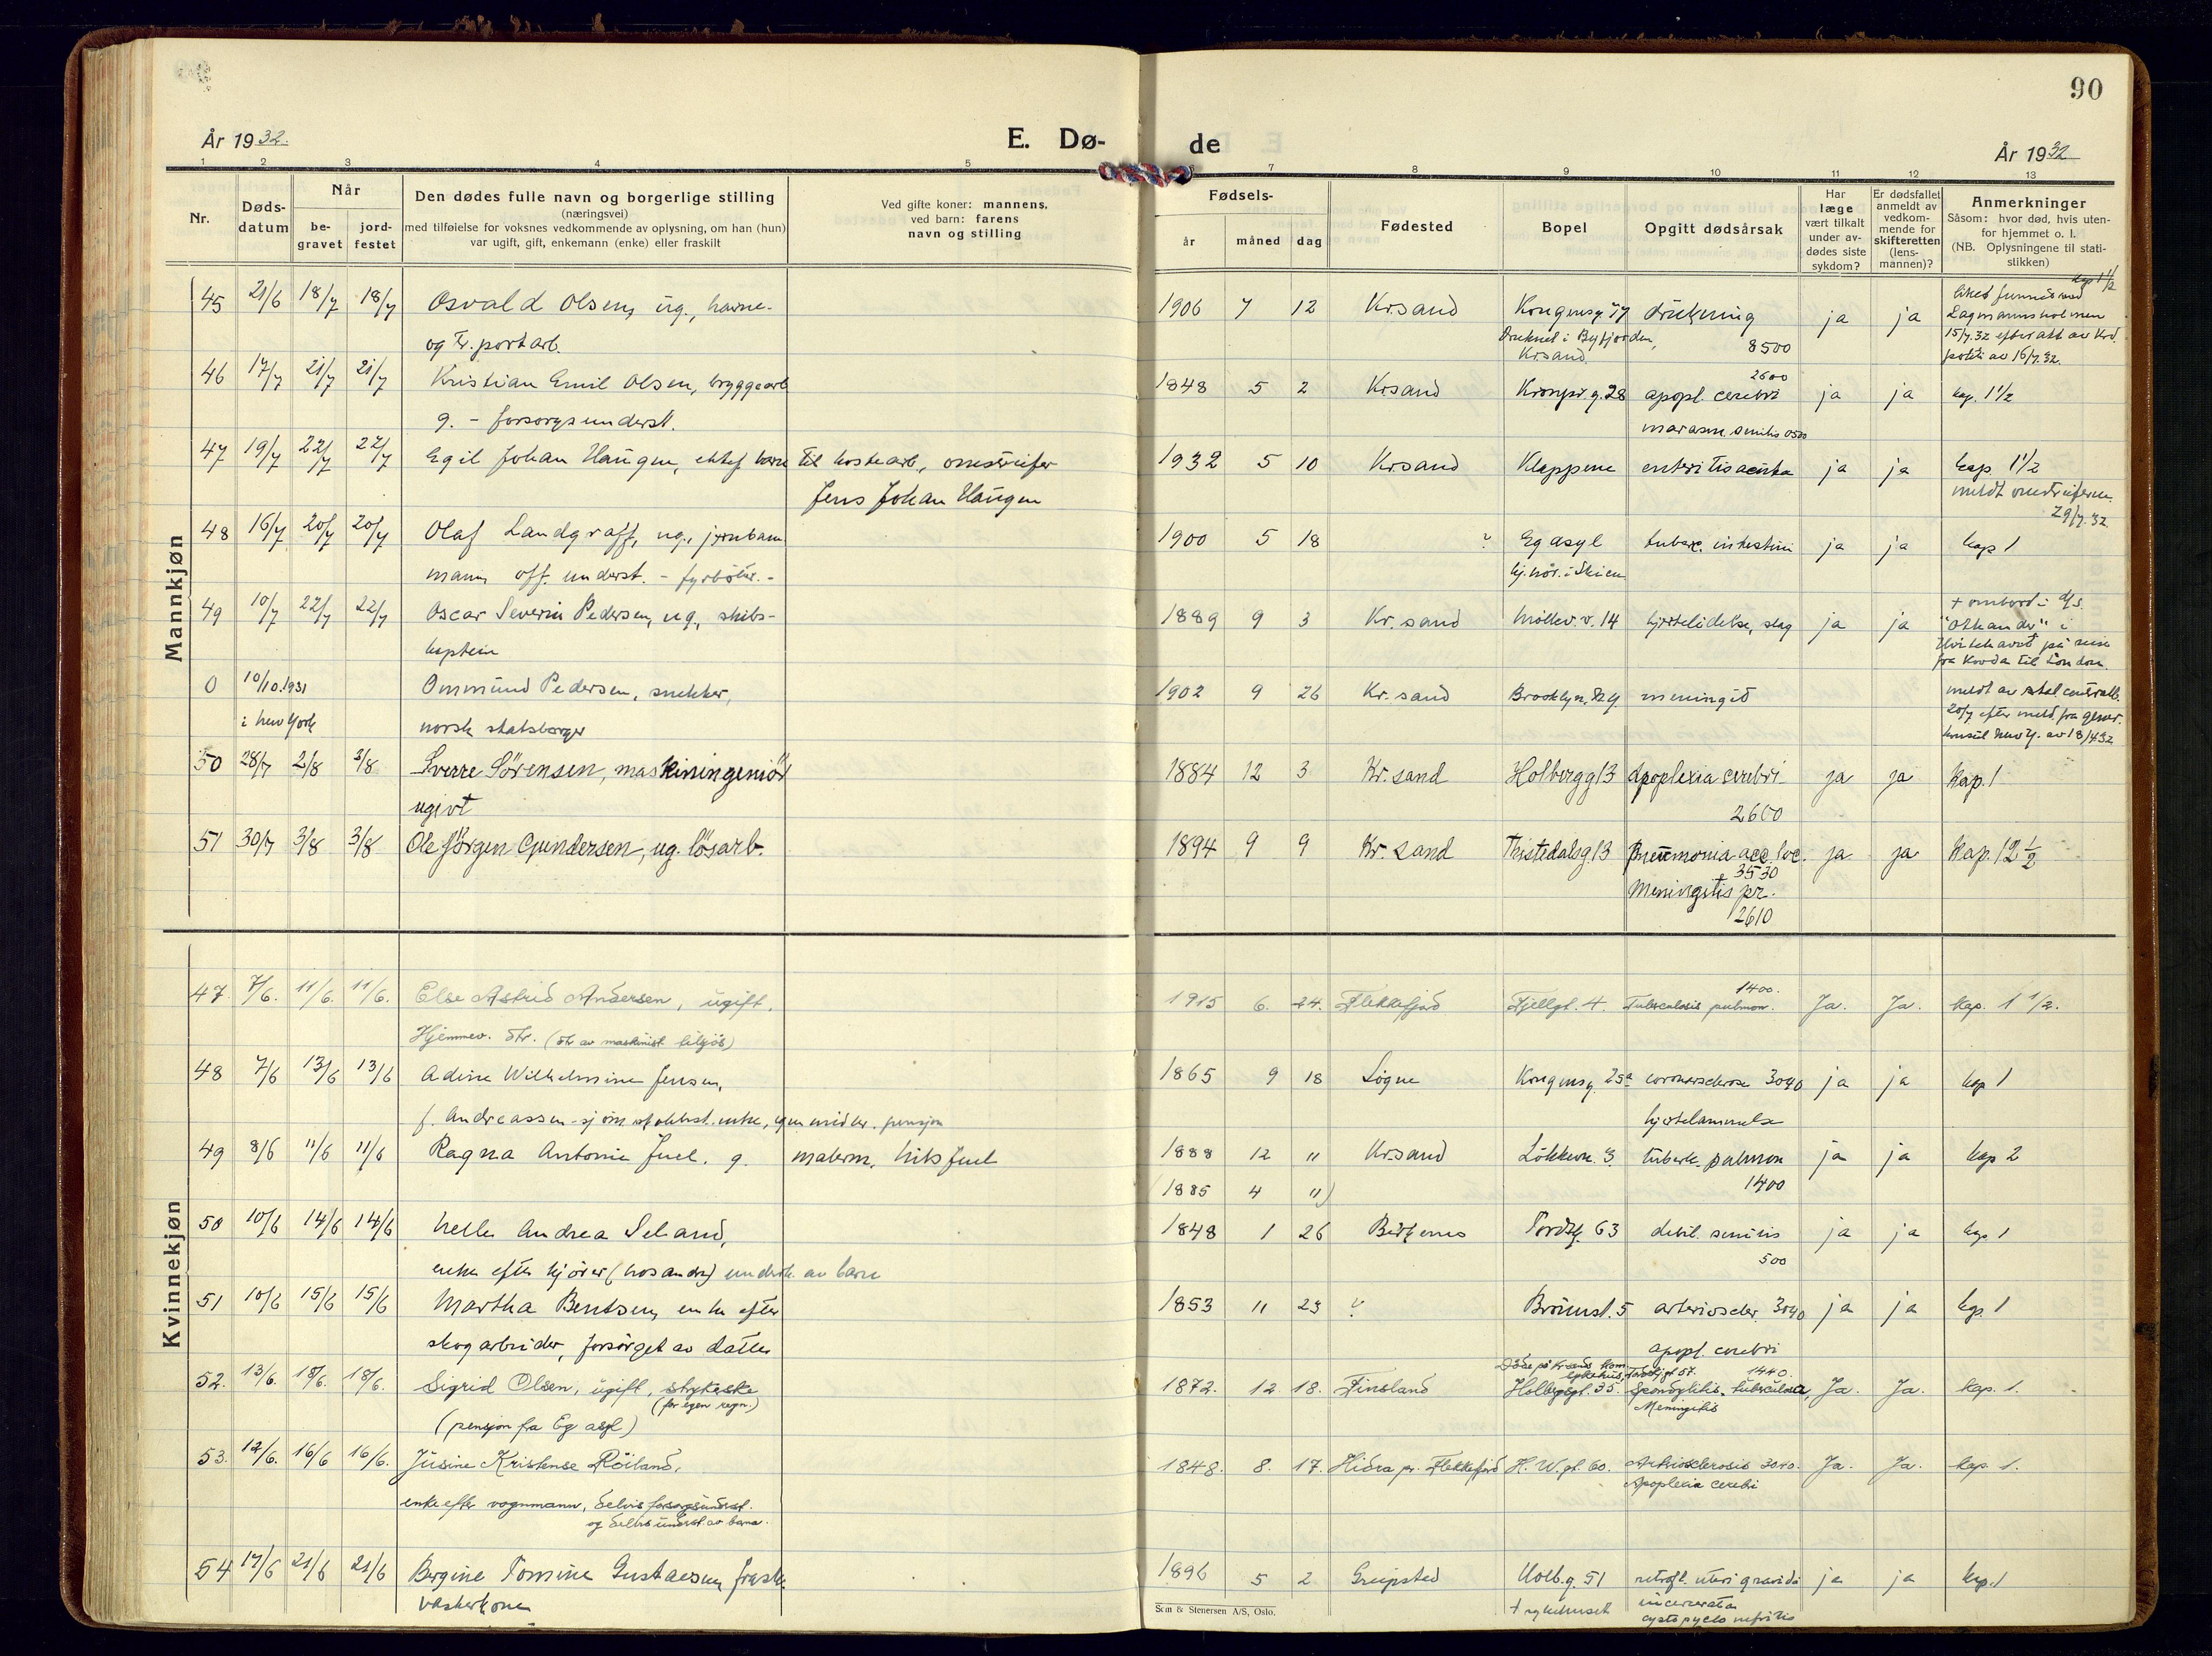 90
År 1932.
E. Dø-
de
År 1932
1 2 3 4 5 7 8 9 10 11 12 13
Nr.
Døds-
datum
Når
be-
gravet
jord-
festet
Den dødes fulle navn og borgerlige stilling
(næringsvei)
med tilføielse for voksnes vedkommende av oplysning, om han (hun)
var ugift, gift, enkemann (enke) eller fraskilt
Ved gifte koner: mannens,
ved barn: farens
navn og stilling
Fødsels-
år måned dag
Fødested
Bopel
Opgitt dødsårsak
Har
læge
vært tilkalt
under av-
dødes siste
sykdom?
Er dødsfallet
anmeldt av
vedkom-
mende for
skifteretten
(lens-
mannen)?
Anmerkninger
Såsom: hvor død, hvis uten-
for hjemmet o. l.
(NB. Oplysningene til stati-
stikken)
Mannkjøn
45 21/6 18/7 18/7 Osvald Olsen, ug., havne- 1906 7 12 Krsand Kongensg. drukning ja ja kap 1 1/2
og Tr. portarb. Druknet i Byfjorden, Krsand. 8500
Liket funnet ved Lagmannsholmen
15/7.32 efter att av Krs.
politi av 16/7.32.
46 17/7 21/7 21/7 Kristian Emil Olsen, bryggearb 1848 5 2 Krsand Kronpr.g. 28 apopl. cerebri 2600 ja ja kap. 1 1/2
g. - forsorgsunderst. marasm. senilis 0500
47 19/7 22/7 22/7 Egil Johan Haugen, ektef barn til kostearb, omstreifer 1932 5 10 Krsand Klappene enteritis acuta ja ja kap. 1 1/2
Jens Johan Haugen meldt omstreiferm.
29/7.32.
48 16/7 20/7 20/7 Olaf Landgraff, ug., jernbane 1900 5 18 ? Eg asyl tuberc. intestini ja ja kap 1
mann, off. underst. - fyrbøter. - hj.hør. i Skien
49 10/7 22/7 22/7 Oscar Severin Pedersen, ug., skibs- 1889 9 3 Kr.sand Møllev.v. 14 hjertelidelse, slag ja ja + ombord i d/s.
kaptein i
Hvitehavet på reise
fra Kovda til London.
0 10/10.1931 Ommund Pedersen, snekker, 1902 9 26 Kr.sand Brooklyn. N.Y meningit meldt av stat.centralb.
i New York norsk statsborger 20/7 efter meld. fra gener.
konsul New Y. av 18/4 32
50 28/7 2/8 3/8 Sverre Sörensen, maskiningeniör 1884 12 3 Kr.sand Holbergg 13 Apoplexia cerebri ja ja kap. 1
ugivt 2600
51 30/7 3/8 3/8 Ole Jörgen Gundersen, ug. lösarb. 1894 9 9 Kr.sand Tristedalsg. 13 Pneumonia acc. loc. ja ja kap. 12 1/2
3530
Meningitis pr.
2610
Kvinnekjøn
47. 7/6. 11/6. 11/6. Else Astrid Andersen, ugift, 1915 6. 24. Flekkefjord Fjellgt. 4. 1400. Tuberculosis pulmon. Ja. Ja. kap. 1 1/2.
Hjemmev. dtr. (dtr av maskinist
48 7/6 13/6 13/6 Adine Wilhelmine Jensen, 1865 9 18 Søgne Kongensg. 25a coronarsclerose 3040 ja ja kap 1
f. Andreassen - enke, egen midler, pensjon hjertelammelse
49 8/6 11/6 11/6 Ragna Antonie Juel. g. malerm. Nils Juel 1888 12 11 Krsand Løkkev. 3 tuberk. pulmon ja ja kap 2
(1885 4 11) 1400
50 10/6 14/6 14/6 Nelle Andrea Seland, 1848 1 26 Birkenes Tordsg. 63 debil. senilis ja ja kap 1
enke efter kjører (hos andre) underh. av barn 500
51 10/6 15/6 15/6 Martha Bentsen, enke efter 1853 11 23 ? Brönnst. 5 arterioscler. 3040 ja ja kap. 1
skogarbeider, forsörget av datter apopl. cerebri
52. 13/6. 18/6. 18/6. Sigrid Olsen, ugift, strykeske 1872. 12 18. Finsland Holbergsgt. 35. Spondylitis tuberculosa, 1440. Ja. Ja. kap. 1.
(for egen regn.) Døde på Kr.sands kom. sykehus, Meningitis
(pensjon fra Eg asyl)
53. 12/6. 16/6 16/6. Jusine Kristense Röiland, 1848. 8. 17. Hidra pr. Flekkefjord H. W. gt. 60. Arteriosclerosis 3040. Ja. Ja. kap. 1.
enke efter vognmann, delvis forsorgsunderst. Apoplexia cerebri
og delvis underst. av barna.
54 17/6 21/6 21/6 Bergine Tomine Gustavsen, frask. 1896 5 2 Greipsted Holb.g. 51 retrofl. uteri gravidi ja ja kap. 1
vaskerkone + sykehuset incercerata
cysto pyelo nefritis
Sem & Stenersen A/S, Oslo.